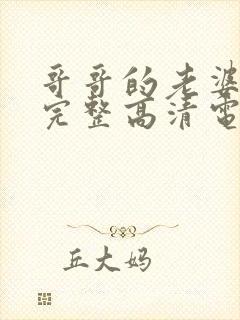 哥哥的老婆
完整高清电
丘大妈